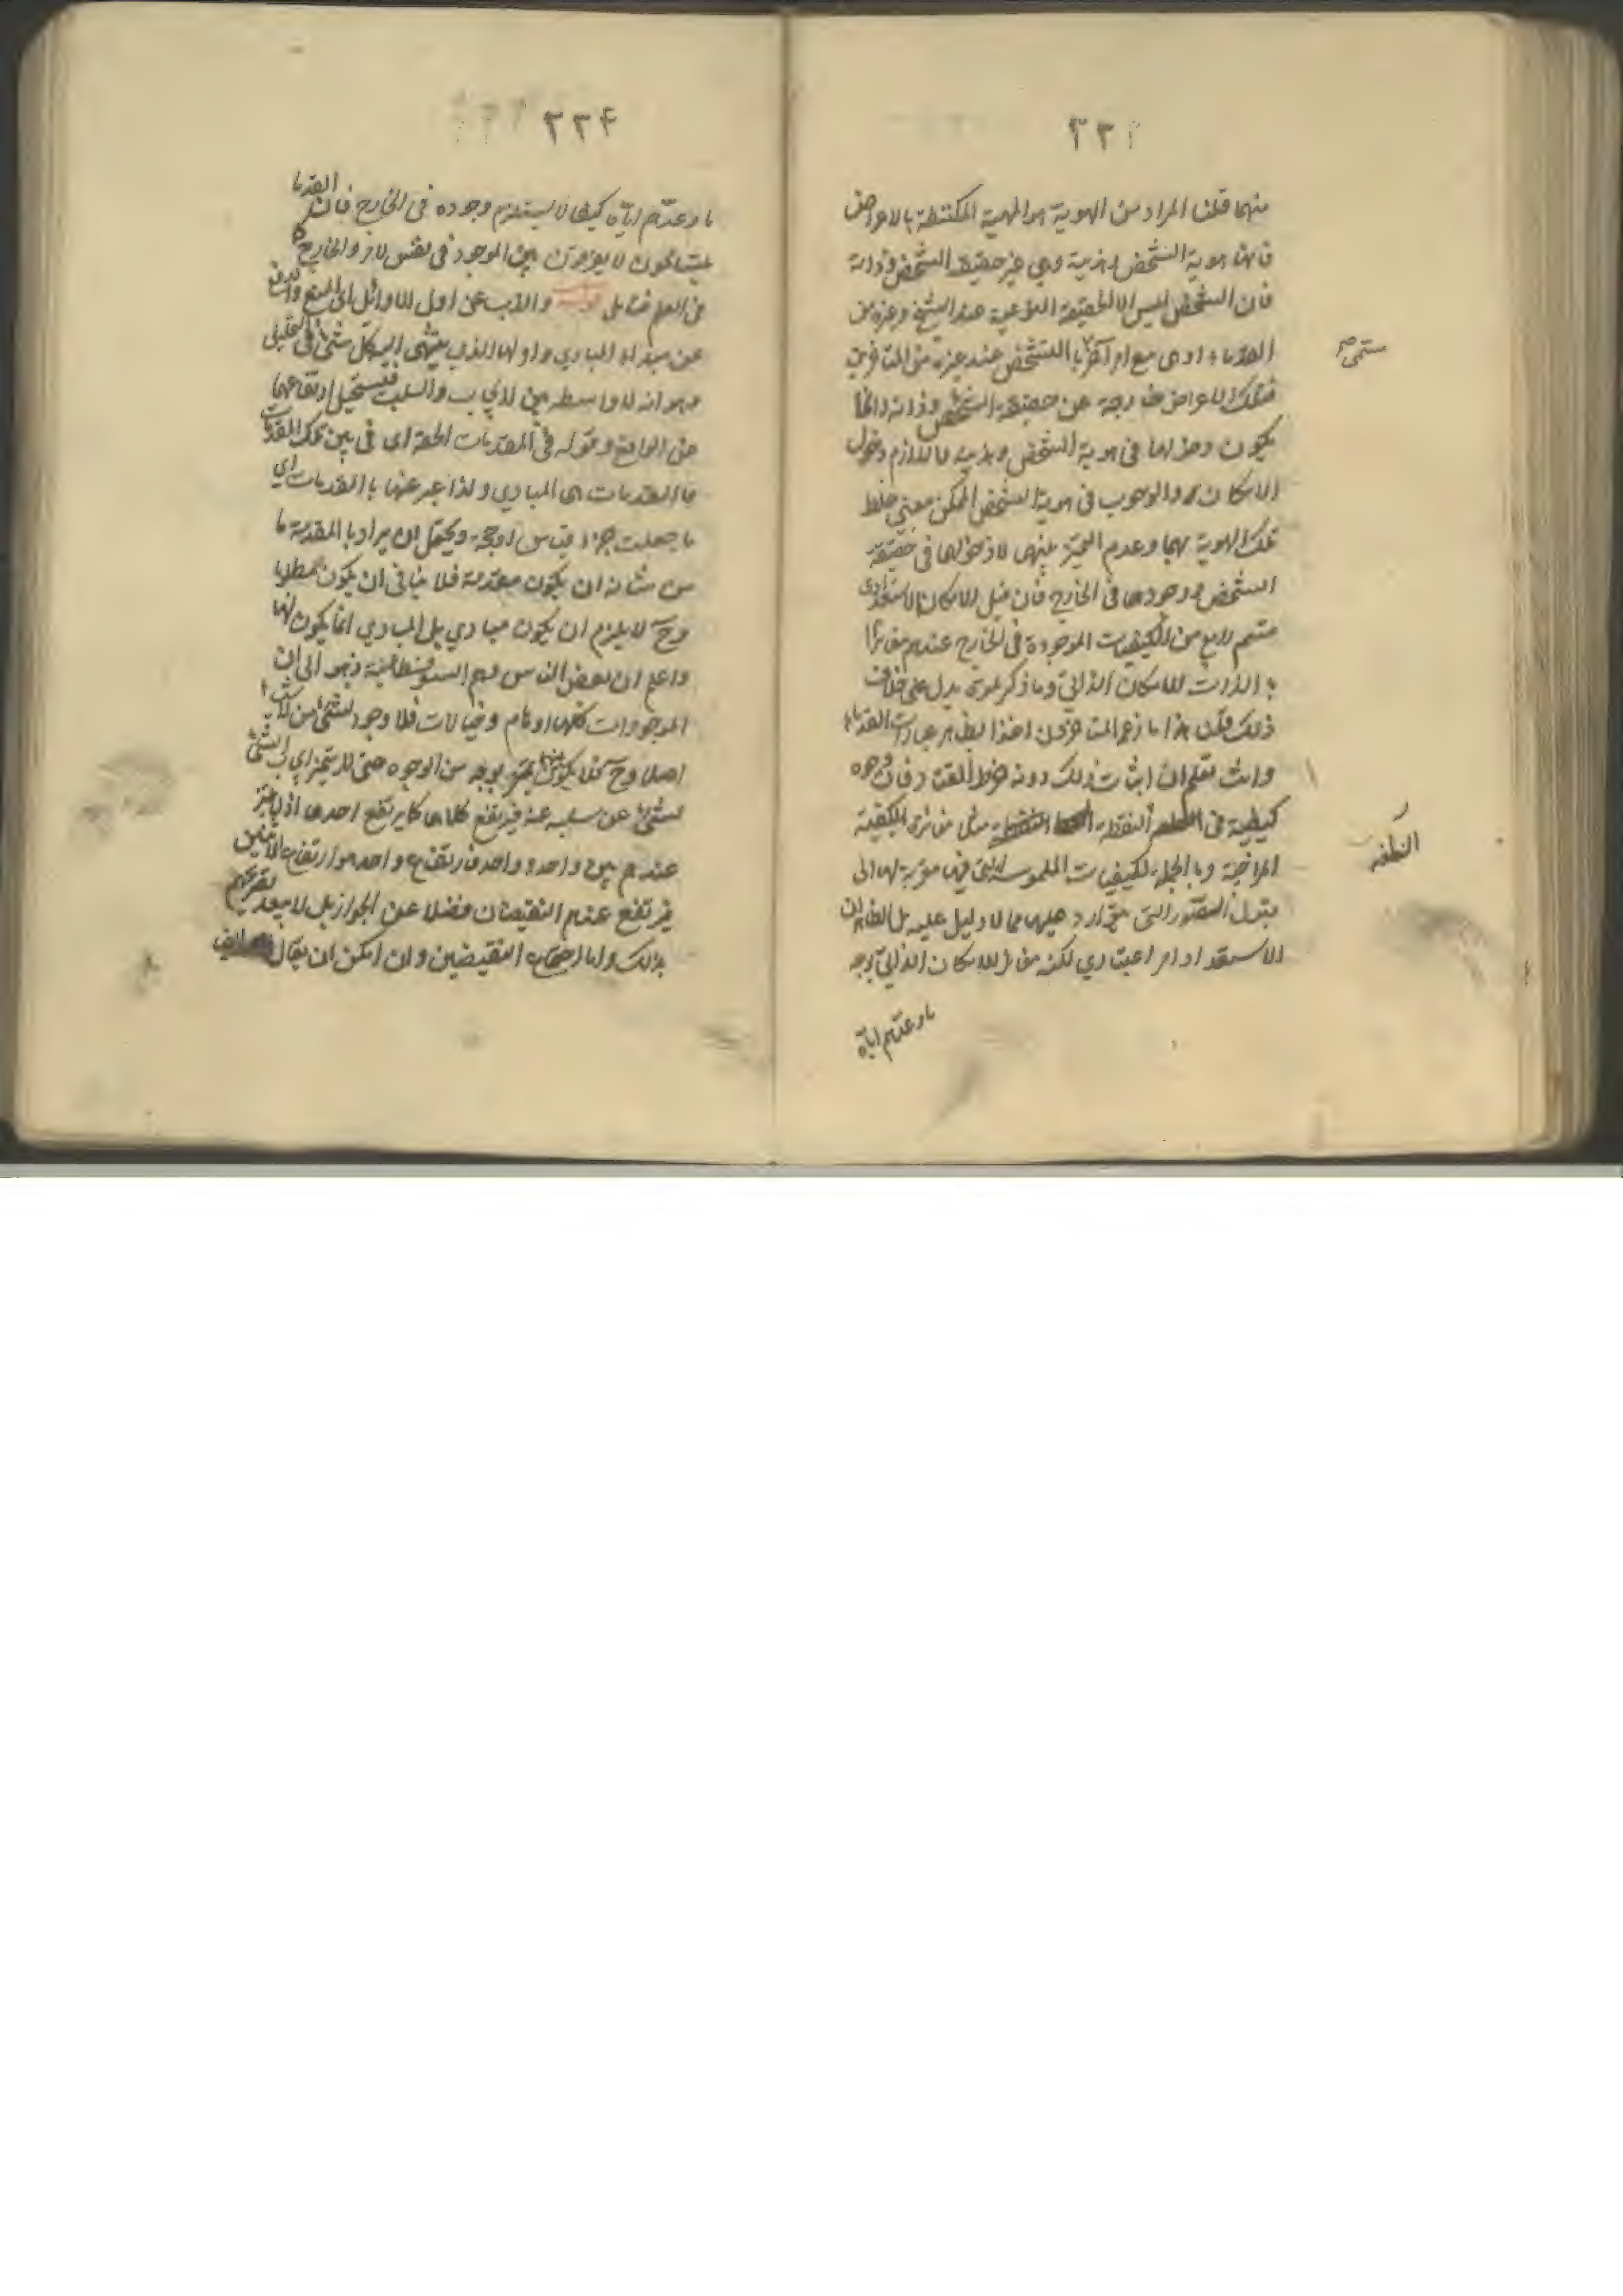 ٢٢٣
منها قلنا المراد من الهوية هو المهية المكتنفة بالاعراض
فانها هوية الشخص وهذية وهي غير حقيقة الشخص وذاته
فان الشخص ليس الا الحقيقة النوعية عند الشيخ وغيره من
القدماء او هي مع امر آخر يسمى بالتشخص عند غيره من المتأخرين
فتلك الاعراض خارجة عن حقيقة الشخص وذاته وانما
يكون دخولها في هوية الشخص وهذيته فاللازم دخول
الامكان والوجوب في هوية الشخص الممكن بمعنى خلط
تلك الهوية بهما وعدم التميز بينهما لا دخولها في حقيقة
الشخص ووجودها في الخارج فان قيل الامكان الاستعدادي
قسم رابع من الكيفيات الموجودة في الخارج عندهم مغايرا
بالذات للامكان الذاتي وما ذكرتموه يدل على خلاف
ذلك قلنا هذا ما زعم المتأخرون اخذا بظاهر عبارات القدماء
وانت تعلم ان اثبات ذلك دونه خرط القتاد فان وجوه
كيفية في النطفة مثلا مغايرة للكيفية
المزاجية وبالجملة لكيفيات الملموسة التي فيها مقربة لها الى
قبول الصور التي تتوارد عليها مما لا دليل عليه بل الظاهر ان
الاستعداد امر اعتباري لكنه مغاير للامكان الذاتي بوجه
ما وعدّهم اياه
يسمى
النطفة
٢٢٤
ما وعدّهم اياه كيفا لا يستلزم وجوده في الخارج فان القدماء
يتسامحون لا يفرقون بين الموجود في نفس الامر والخارج
من العلم فتأمل قوله والذب عن اول الاوائل اي المنع والدفع
عن مبدأ المبادي واولها الذي ينتهي اليه كل شيء في التحليل
وهو انه لا واسطة بين الايجاب والسلب فيستحيل ارتفاعهما
عن الواقع وقوله في المقدمات الحقة اي في بين تلك المقدمات
فالمقدمات هي المبادي ولذا عبر عنها بالمقدمات اي
ما جعلت جزء قياس او حجة ويحتمل ان يراد بالمقدمة ما
من شانه ان يكون مقدمة فلا ينافي ان يكون مطلوبا
وح لا يلزم ان يكون مبادي بل المبادي انما يكون لها
واعلم ان بعض الناس وهم السوفسطائية ذهبوا الى ان
الموجودات كلها اوهام وخيالات فلا وجود لشيء من الاشياء
اصلا وح فلا يكون بينها تميز بوجه من الوجوه حتى لا يتميز ايجاب الشيء
لشيء عن سلبه عنه فيرتفع كلاهما كما يرتفع احدهما اذ لا تميز
عندهم بين واحد وواحد فارتفاع واحد هو ارتفاع الاثنين
فيرتفع عندهم النقيضان فضلا عن الجواز بل لا يبعد تصريحهم
بذلك واما اجتماع النقيضين وان امكن ان يقال